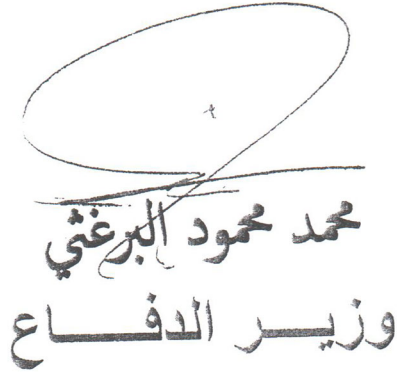 محمد محمود البرغثي
وزيـــر الدفـــاع